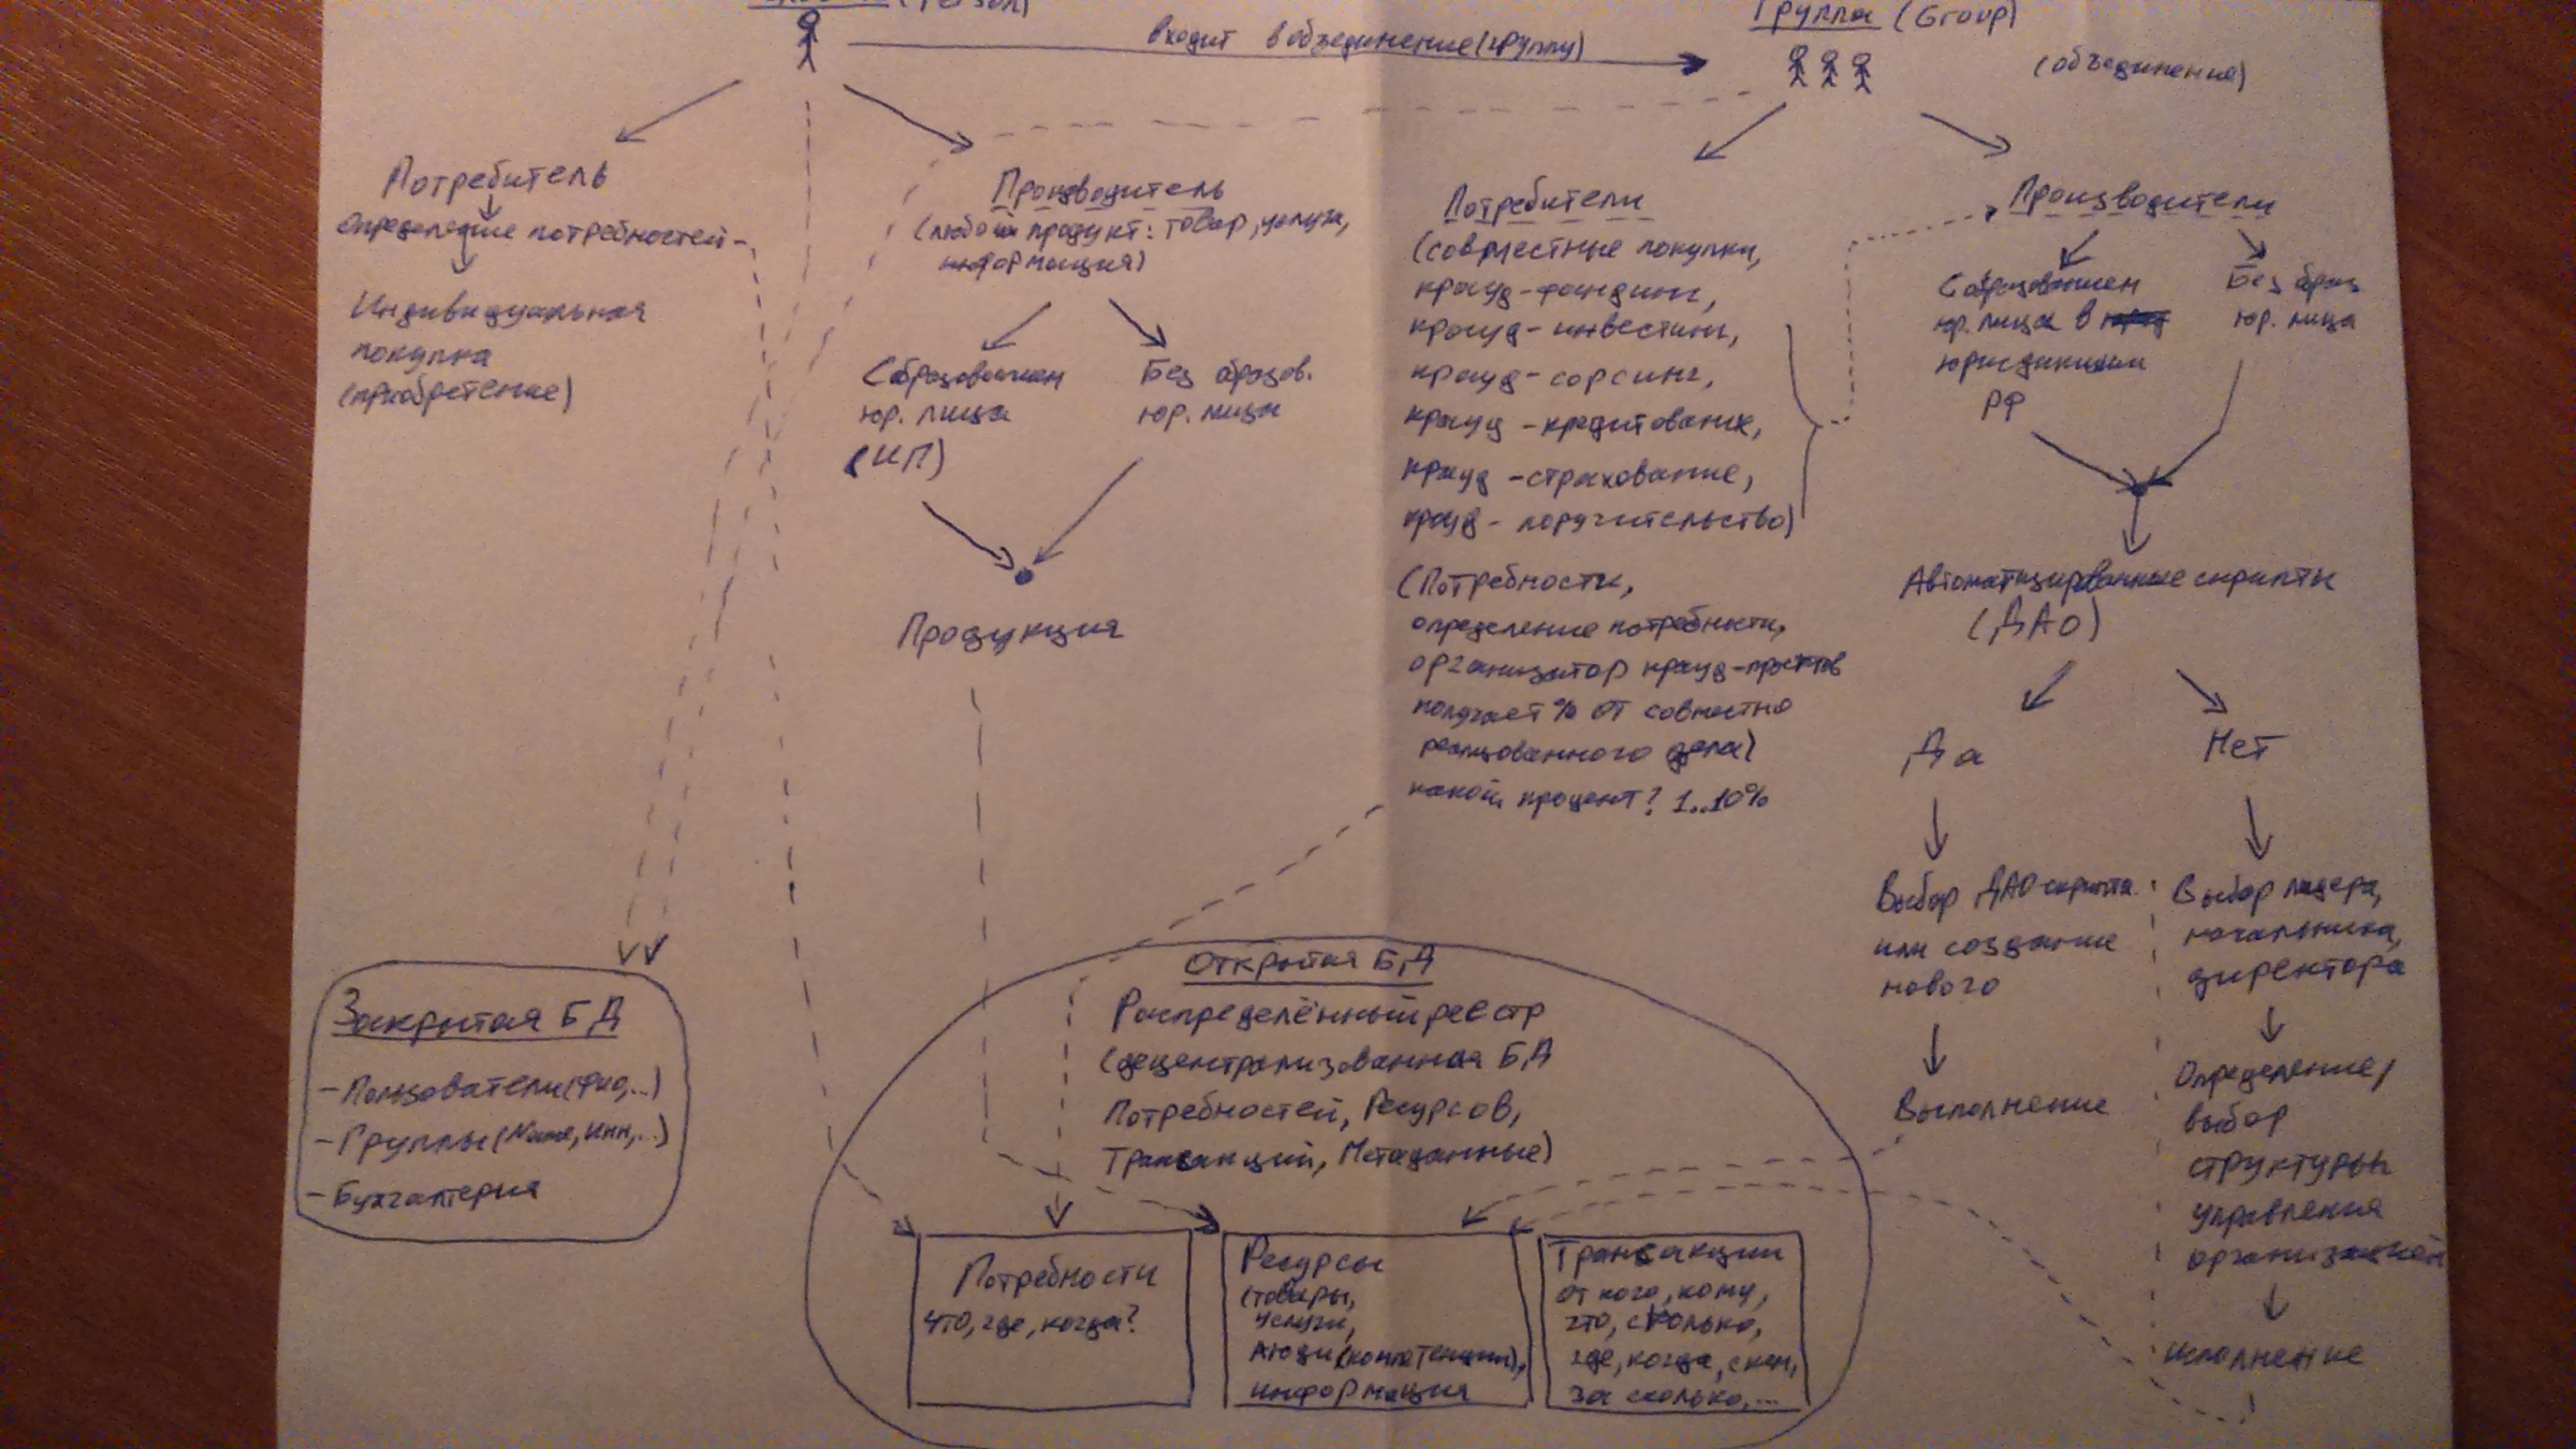 (Person)
входит в объединение (группу)
Группа (Group)
(объединение)
Потребитель
определение потребностей
Индивидуальная
покупка
(приобретение)
Производитель
(любой продукт: товар, услуга,
информация)
С образованием
юр. лица
(ИП)
Без образов.
юр. лица
Продукция
Потребители
(совместные покупки,
крауд-фандинг,
крауд-инвестинг,
крауд-сорсинг,
крауд-кредитование,
крауд-страхование,
крауд-поручительство)
(Потребности,
определение потребности,
организатор крауд-проектов
получает % от совместно
реализованного дела)
какой процент? 1..10%
Производители
С образованием
юр. лица в
юрисдикции
РФ
Без образ
юр. лица
Автоматизированные скрипты
(ДАО)
Да
Нет
Выбор ДАО скрипта
или создание
нового
Выполнение
Выбор лидера,
начальника,
директора
Определение/
выбор
структуры
управления
организацией
исполнение
Закрытая БД
- Пользователи (ФИО,...)
- Группы (Name, ИНН,...)
- Бухгалтерия
Открытая БД
Распределённый реестр
(децентрализованная БД
Потребностей, Ресурсов,
Транзакций, Метаданные)
Потребности
что, где, когда?
Ресурсы
(товары,
услуги,
люди (компетенции),
информация
Трансакции
от кого, кому,
что, сколько,
где, когда, с кем,
за сколько,...